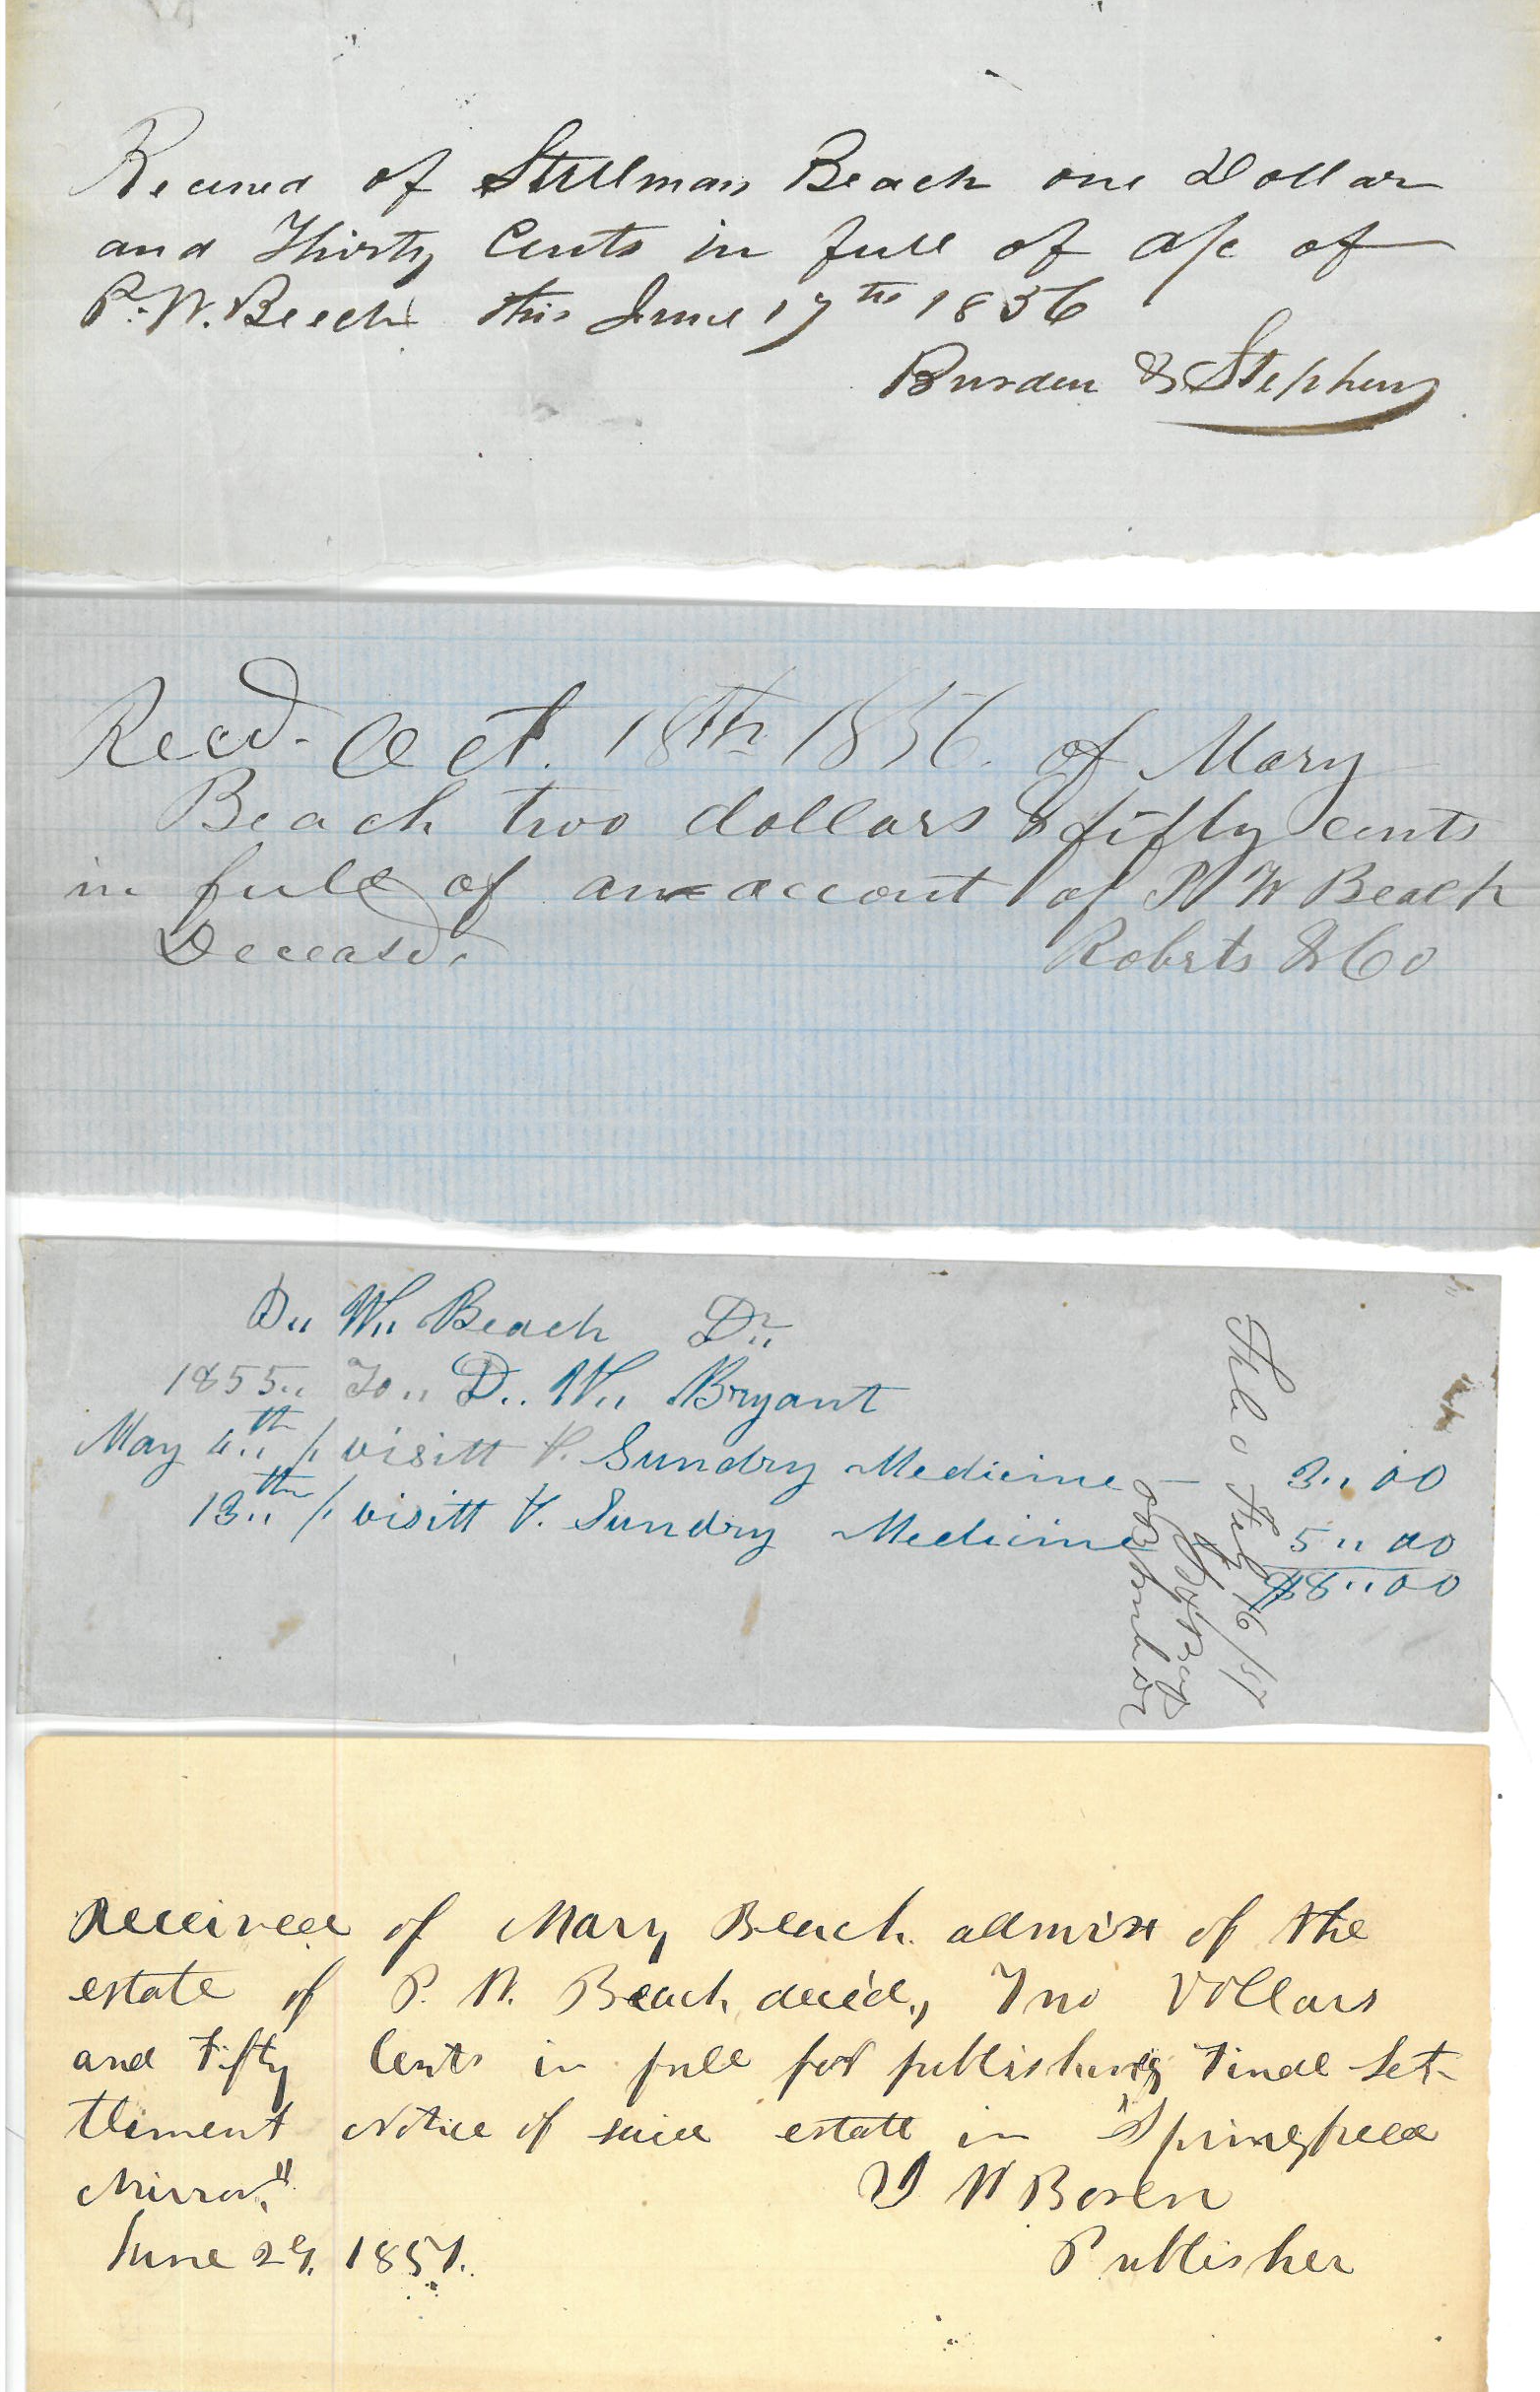 Received of Stillman Beach one Dollar
and Thirty Cents in full of a/c of
P. W. Beech this June 17th 1856
Burden & Stephens
Recd. Oct. 18th 1856. of Mary
Beach two dollars & fifty cents
in full of an accout of P W Beach
Deceasd.
Roberts & Co
W,, Beach Dr,,
1855,, To,, D,, W,, Bryant
May 4,,th /. visitt & Sundry Medicine — 3,,00
13,,th /. visitt & Sundry Medicine 5,,00
$8,,00
Feby 16/57
Received of Mary Beach admix of the
estate of P. W. Beach, decéd., Two Dollars
and Fifty Cents in full for publishing Final Set-
tlement Notice of said estate in "Springfield
Mirror."
W Boren
Publisher
June 29. 1857.